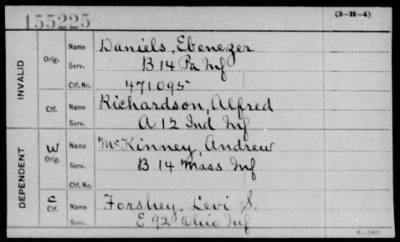 155225
(3-H-4)
INVALID
Orig. Name Daniels, Ebenezer
Serv. B 14 Pa Inf
Ctf. No. 471095
Ctf. Name Richardson, Alfred
Serv. A 12 Ind Inf
DEPENDENT
W Orig. Name McKinney, Andrew
Serv. B 14 Mass Inf
Ctf. No.
C Ctf. Name Forshey, Levi S.
Serv. E 92 Ohio Inf